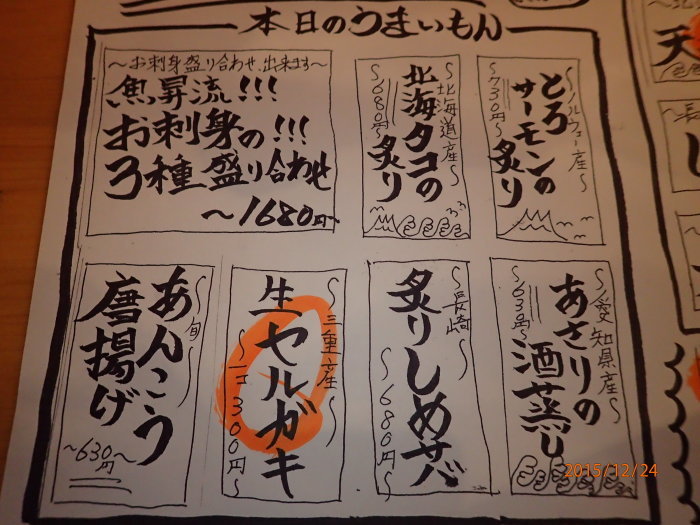 本日のうまいもん
〜お刺身盛り合わせ、出来ます〜
魚昇流!!!
お刺身の!!!
3種盛り合わせ
〜1680円
〜北海道産〜
北海タコの
炙り
680円
〜ノルウェー産〜
とろ
サーモンの
炙り
〜730円〜
〜旬〜
あんこう
唐揚げ
〜630円〜
〜三重産〜
生セルガキ
〜一コ300円〜
〜長崎〜
炙りしめサバ
〜680円〜
〜愛知県産〜
あさりの
酒蒸し
〜630円〜
天
2015/12/24